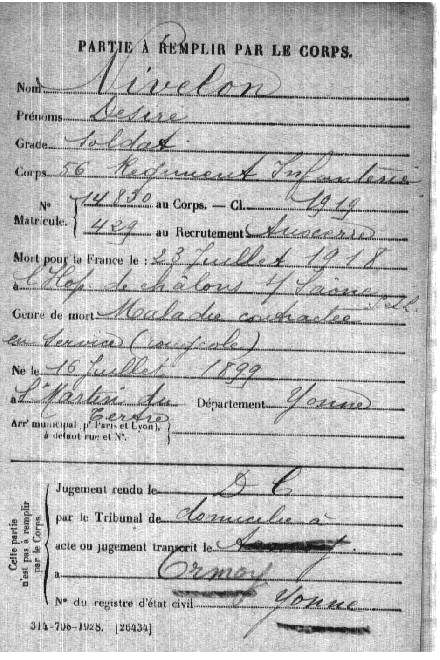 PARTIE À REMPLIR PAR LE CORPS.
Nom Nivelon
Prénoms Desire
Grade Soldat
Corps 56 Regiment Infanterie
N° Matricule. { 14830 au Corps. — Cl. 1919
429 au Recrutement Auxerre
Mort pour la France le : 23 Juillet 1918
à l'Hop de châlons s/ Saone S et L
Genre de mort Maladie contractée
en service (rougeole)
Né le 16 Juillet 1899
à St Martin du Tertre Département Yonne
Arr' municipal (p' Paris et Lyon), à défaut rue et N°.
Cette partie n'est pas à remplir par le Corps.
Jugement rendu le D C
par le Tribunal de domicilié à
acte ou jugement transcrit le
à Ormoy
N° du registre d'état civil Yonne
314-706-1928. [26434]